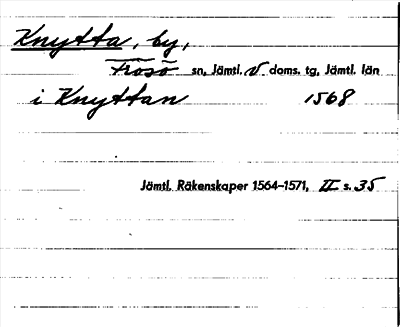 Knytta, by,
Frösö sn, Jämtl. V doms. tg, Jämtl. län
i Knyttan 1568
Jämtl. Räkenskaper 1564-1571, II s. 35